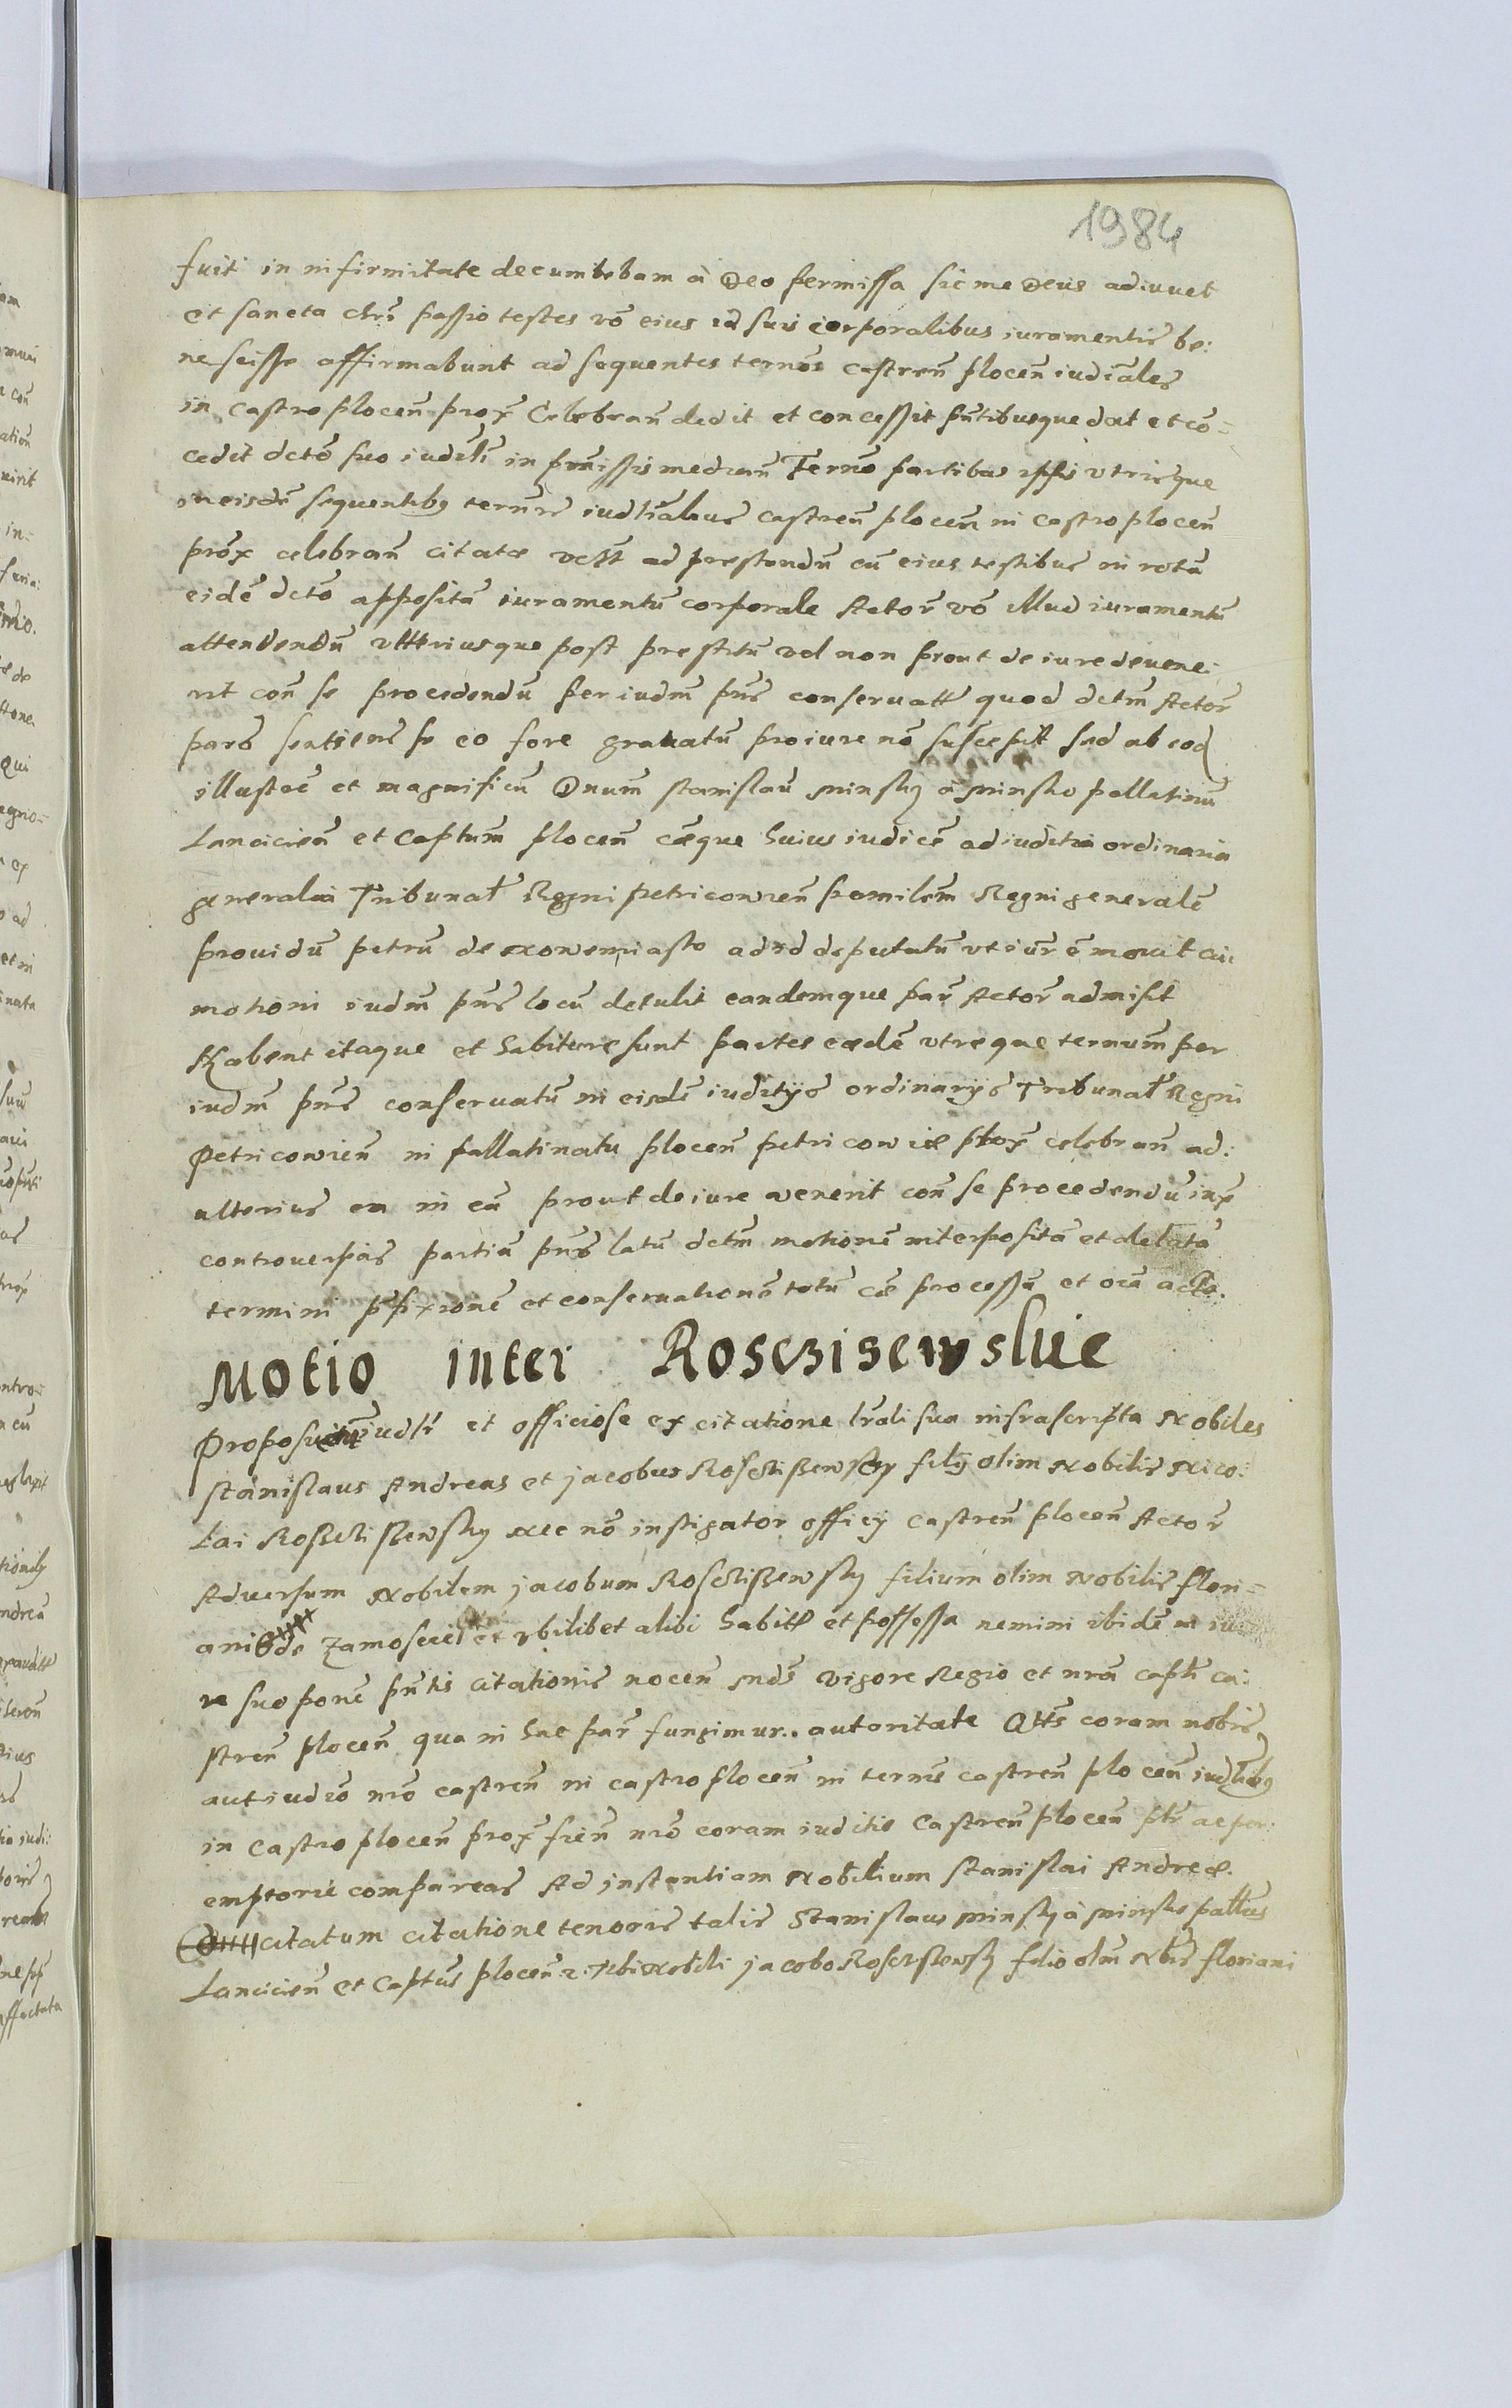 1984
fuit in infirmitate decumbebam à Deo permissa sic me Deus adiuvet
et sancta chrī passio testes vō eius id suis corporalibus iuramentis be:
ne scisse affirmabunt ad sequentes ternōs castreñ ploceñ iudiāles
in castro ploceñ prox̄ Celebrañ dedit et concessit pn̄tibusque dat et cō=
cedit dctō suo iudcli in prm̄issis median̄ Termō partibus ipsis vtrisque
in eisdē sequentibꝫ termīs iudtialibus castreñ ploceñ in castro ploceñ
prōx celebrañ citatæ ad prestandū cū eius testibus in rotā
eidē dctō appositā iuramentū corporale Actor̄ vō illud iuramentū
attendendū vtteriusque post prestitū vel non prout de iure devene:
rit con̄ se procedendū per iudm̄ pn̄s conservatt quod dctm̄ Actor̄
pars sentiens se eo fore gravatū pro iure nō suscepit sed ab eod
illustrē et magnificū Dnum̄ stanislaū minsky à minsko pallatinū
Lancicieñ et Captum̄ ploceñ cæque huius iudicē ad iuditia ordinaria
generalia Tribunał Regni petricovieñ famulem̄ Regni generalē
providū petrū de nowemiasto ad id deputatū vt iur̄ ē movit cui
motioni iudm̄ pn̄s locū detulit eandemque par̄ Actor̄ admisit
Habent itaque et habituræ sunt partes eædē vtreque ternum̄ per
iudm̄ pn̄s conservatū in eisdē iuditys ordinarys Tribunał Regni
Petricowieñ in pallatinatu ploceñ petricowiæ prox̄ celebrañ ad:
ulterius ea in eā prout de iure venerit con̄ se procedendū inx̄
controversias partiū pn̄s latū dctm̄ motionē interpositā et delatā
termini pr̄fixionē et conservationē totū cæ processū et oīa acta.
Motio inter Rosczisewskie
Proposuerūt iudlr̄ et officiose ex citatione lrāli sua infrascripta Nobiles
stanislaus Andreas et jacobus Roscißewscy fily olim Nobilis Nico:
Lai Roßcißewsky Nec nō instigator officy castreñ ploceñ Actor̄
Adversum Nobilem jacobum Roscißewsky filium olim Nobilis flori=
ani de Zamoscie et vbilibet alibi habitt et possessa nemini ibidē in iu
re suo pone pn̄tis citationis noceñ vigore Regio et nrōn captł ca:
streñ ploceñ qua in hac par̄ fungimur.. autoritate coram nobis
aut iudiō nrō castreñ in castro ploceñ in ternīs castreñ ploceñ iudlibꝫ
in castro ploceñ prox̄ fień nrō coram iuditio Castreñ ploceñ ptr̄ ac per:
emptorie compareas Ad instantiam Nobilium stanislai Andreæ.
citatum citatione tenoris talis Stanislaus minsky à minsko pałłus
Lancicieñ et Captus ploceñ Tibi Nobili jacobo Roscißewsky filio olm̄ Nbīs floriani